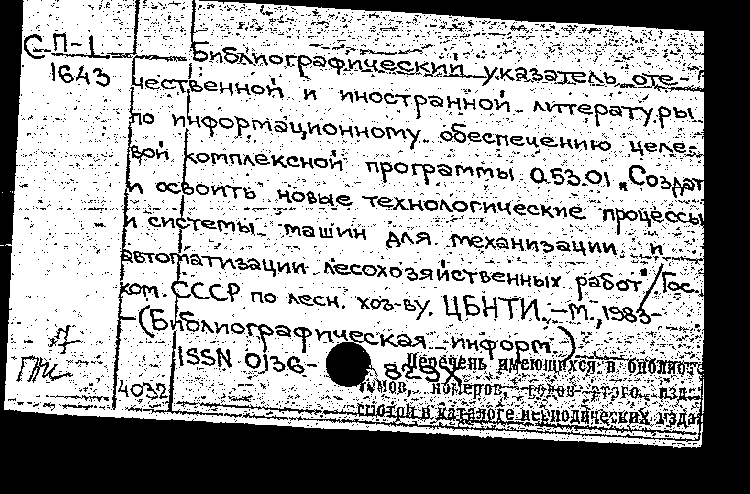 СП-1
1643
Библиографический указатель оте-
чественной и иностранной литературы
по информационному обеспечению целе-
вой комплексной программы 0.53.01 „Создат
и освоить новые технологические процессы
и системы машин для механизации и
автоматизации лесохозяйственных работ"/Гос.
ком. СССР по лесн. хоз-ву. ЦБНТИ. – М., 1983-
– (Библиографическая информ.)
ISSN 0136- 825X
Перечень имеющихся в библиоте
томов, номеров, годов этого изда
смотри в каталоге периодических изда
4032